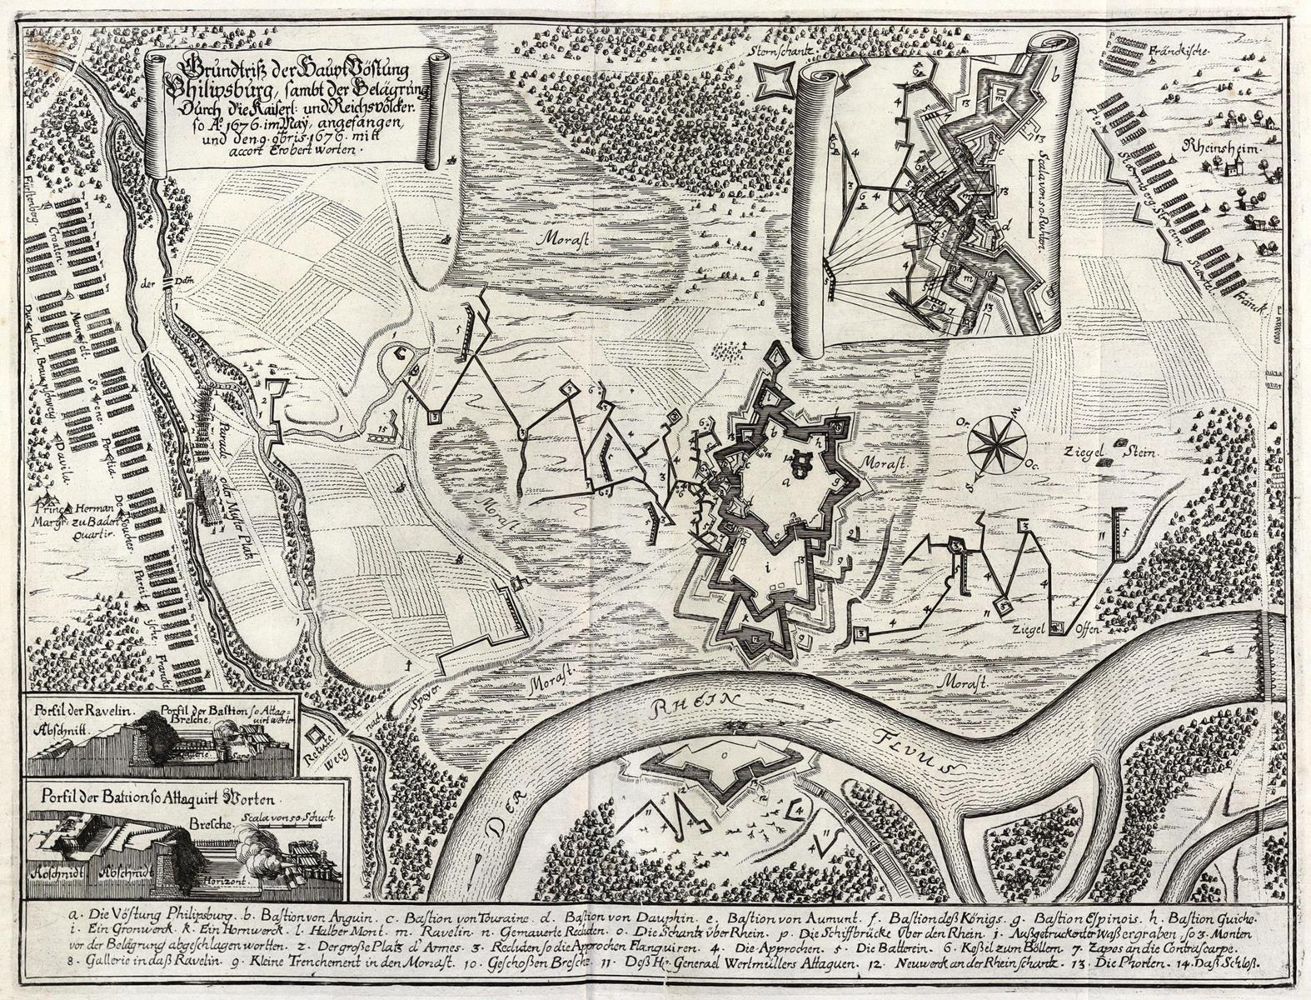 Grundtriß der Haupt Vöstung
Philipsburg, sambt der Belägrung
Durch die Kaiserl: und Reichsvölcker.
so Aº 1676. im May, angefangen,
und den 9. 9bris. 1676. mitt
accort Erobert worten.
Sternschantz
Fränckische.
Rheinsheim.
Scala von 50 Ruhten.
Morast
Fürstenberg
Croaten.
der Dam
Davila
Prinz Herman
Margr: zu Baden
Quartir.
Parade oder Mester Platz
Morast.
Morast.
Or.
Oc.
M
S
Ziegel Stein.
Ziegel Offen
Morast.
Morast
nach Speyer
Redute
Weeg
DER RHEIN FLVUS
Porfil der Ravelin.
Abschnitt.
Porfil der Bastion so Attaq-
uirt worten
Bresche.
Porfil der Bastion so Attaquirt Worten.
Bresche.
Scala von 50 Schuch
Abschnidt
Abschnidt
Horizont.
a. Die Vöstung Philipsburg. b. Bastion von Anguin. c. Bastion von Touraine. d. Bastion von Dauphin. e. Bastion von Aumunt. f. Bastion deß Königs. g. Bastion Espinois. h. Bastion Guiche.
i. Ein Gronwerck. k. Ein Hornwerck. l. Halber Mont. m. Ravelin. n. Gemauerte Reduten. o. Die Schantz über Rhein. p. Die Schiffbrücke über den Rhein. 1. Außgetruckenter Waßergraben, so 3. Monten
vor der Belägrung abgeschlagen wortten. 2. Der große Platz d'Armes. 3. Reduten so die Approchen Flanquiren. 4. Die Approchen. 5. Die Batterein. 6. Keßel zum Böllern. 7. Zapes an die Contrscarpe.
8. Gallerie in daß Ravelin. 9. Kleine Trenchement in den Morast. 10. Geschoßen Bresche. 11. Deß Hr. General Wertmüllers Attaquen. 12. Neuwerck an der Rheinschantz. 13. Die Phorten. 14. Daß Schloß.